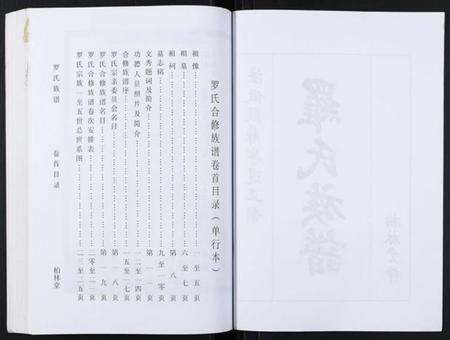 罗氏合修族谱卷首目录(单行本)
祖像……一至五页
祖墓……六至七页
祖祠……八页
墓志稿……九至十页
文秀题词及简介……十一页
功德人员照片及简介……十二至十四页
合修族谱序……十五至十七页
罗氏宗亲委员会名目……第十八页
罗氏合修族谱名目……第十九页
罗氏合修族谱卷次安排表……二零至二一页
罗氏宗族一至五世总世系图……二二至二五页
罗氏族谱
卷首目录
柏林堂
羅氏族譜